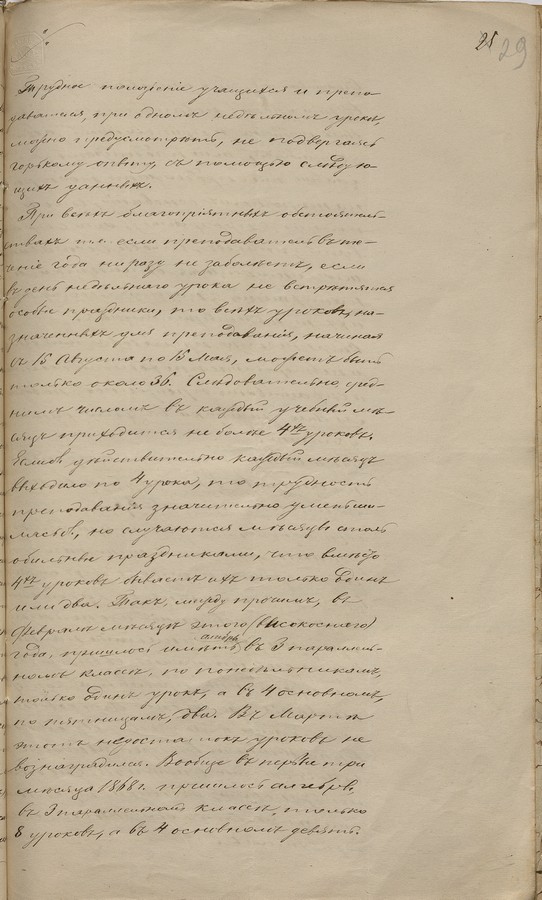 25 29
Трудное положеніе учащихся и препо-
давателя, при одномъ недѣльномъ урокѣ,
можно предусмотрѣть, не подвергаясь
горькому опыту, съ помощью слѣдую-
щихъ данныхъ.
При всѣхъ благопріятныхъ обстоятель-
ствахъ т.е. если преподаватель въ те-
ченіе года ни разу не заболѣетъ, если
въ день недѣльнаго урока не встрѣтятся
особые праздники, то всѣхъ уроковъ, на-
значенныхъ для преподаванія, начиная
съ 15 Августа по 15 Мая, можетъ быть
только около 36. Слѣдовательно сред-
нимъ числомъ въ каждый учебный мѣ-
сяцъ приходится не болѣе 4хъ уроковъ.
Еслибъ дѣйствительно каждый мѣсяцъ
выходило по 4 урока, то трудность
преподаванія значительно уменьши-
лась бы, но случаются мѣсяцы столь
обильные праздниками, что вмѣсто
4хъ уроковъ бываетъ ихъ только одинъ
или два. Такъ, между прочимъ, въ
Февралѣ мѣсяцѣ этого (високоснаго)
года, пришлось имѣть въ 3 параллель-
номъ классѣ, по понедѣльникамъ,
только одинъ урокъ, а въ 4 основномъ,
по пятницамъ, два. Въ Мартѣ
этотъ недостатокъ уроковъ не
вознаградился. Вообще въ первые три
мѣсяца 1868 г. пришлось алгебры,
въ 3 параллельномъ классѣ, только
8 уроковъ, а въ 4 основномъ девять.